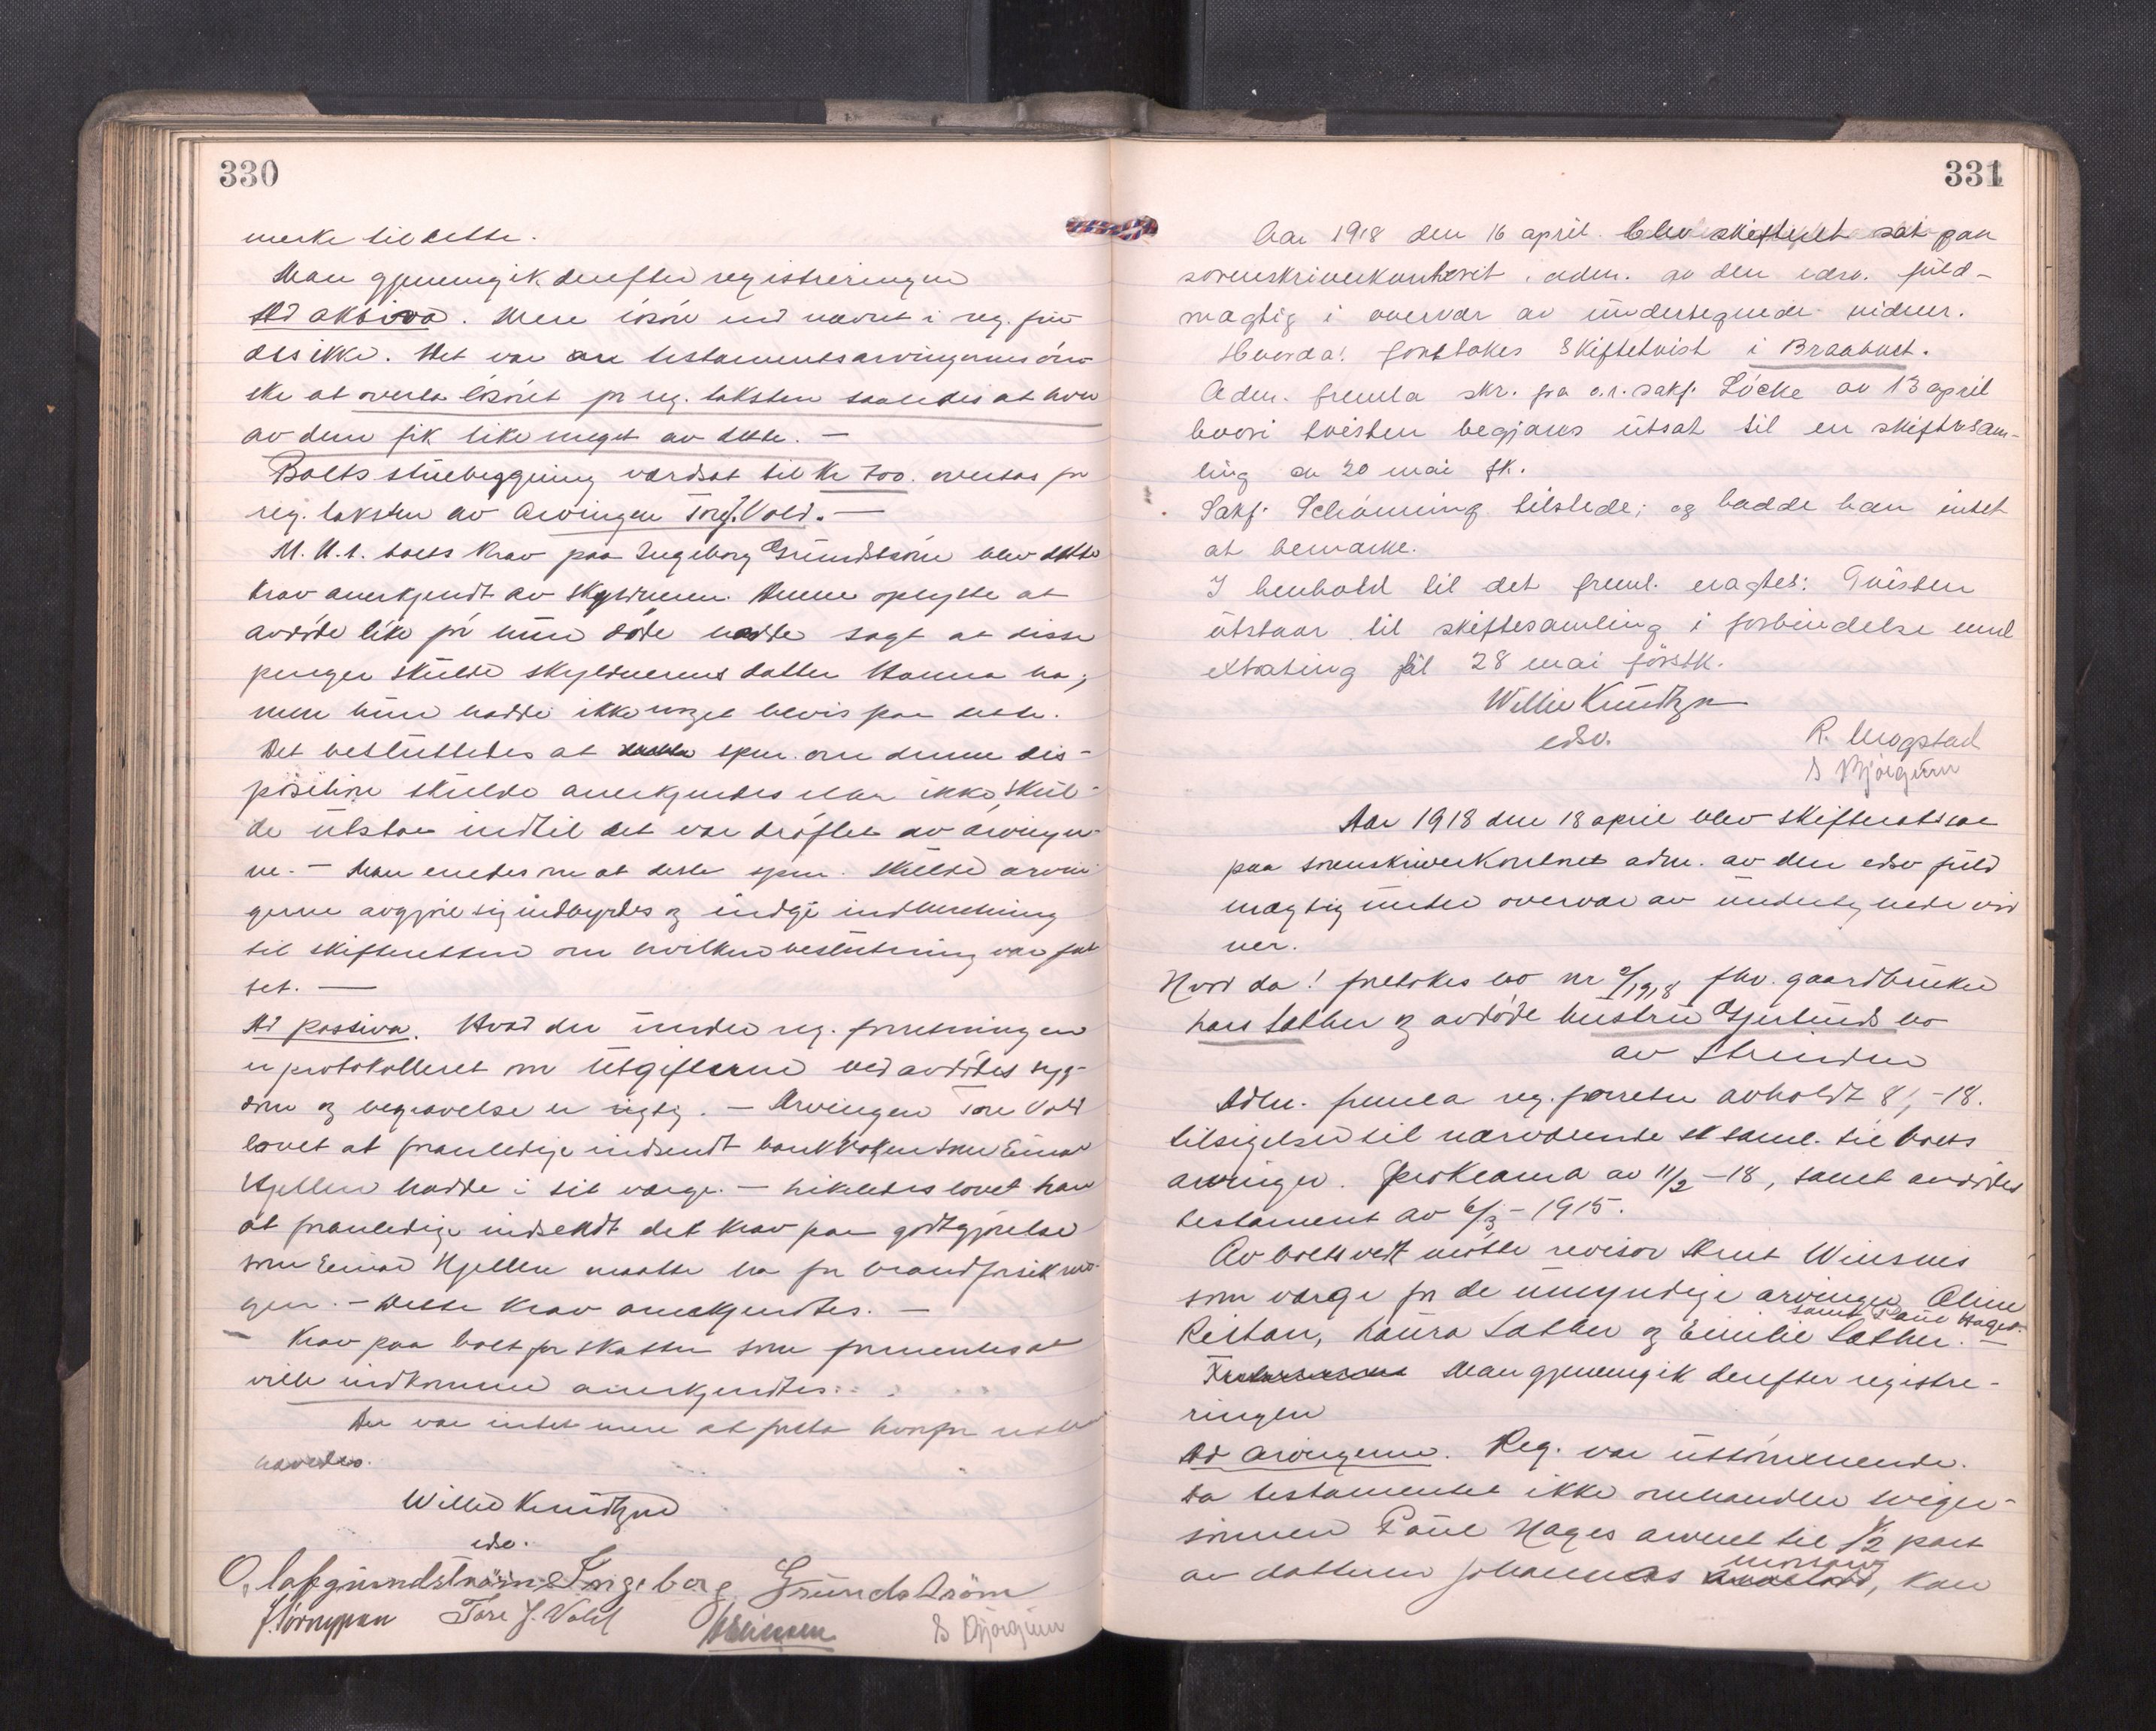 330
merke til dette.
Man gjennemgik derefter registreringen
Ad aktiva. Mere løsøre end nævnt i reg. fin-
des ikke. Det var an testamentsarvingernes øns-
ke at overta løsøret pr reg. taksten saaledes at hver
av dem fik like meget av dette. —
Boets stuebygning værdsat til kr 700. overtas for
reg. taksten av arvingen Tore J. Vold. —
M. H. t. boets krav paa Ingeborg Grundstrøm blev dette
krav anerkjendt av skyldneren. Denne oplyste at
avdøde like før hun døde hadde sagt at disse
penger skulde skyldnerens datter Hanna ha;
men hun hadde ikke noget bevis paa dette.
Det besluttedes at spm. om denne dis-
position skulde anerkjendes eller ikke, skul-
de utstaa indtil det var drøftet av arvinger-
ne. — Man enedes om at dette spm. skulde arvin-
gerne avgjøre sig indbyrdes og indgi indberetning
til skifteretten om hvilken beslutning var fat
tet. —
Ad passiva. Hvad der under reg. forretningen
er protokolleret om utgifterne ved avdødes syg-
dom og begravelse er rigtig. — Arvingen Tore Vold
lovet at foranledige indsendt bankboken som Einar
Hjellen hadde i sit værge. — Likeledes lovet han
at foranledige indsendt det krav paa godtgjørelse
som Einar Hjellen maatte ha for brandforsikrin-
gen. — Dette krav anerkjendtes. —
Krav paa boet for skatter som formentes at
ville indkomme anerkjendtes.
Der var intet mere at foreta hvorfor retten
hævedes.
Willie Knudtzon
edsv.
Olaf Grundstrøm Ingeborg Grundström
J. Tørnypan Tore J. Vold S Bjørgum
331
Aar 1918 den 16 april blev skifteret sat paa
sorenskriverkontoret adm. av den edsv. fuld-
mægtig i overvær av undertegnede vidner.
Hvorda: foretokes Skiftetvist i Braabuet.
Adm. fremla skr. fra o.r.sakf. Löcke av 13 april
hvori tvisten begjæres utsat til en skiftesam-
ling av 20 mai fk.
Sakf. Schønning tilstede; og hadde han intet
at bemærke.
I henhold til det freml. eragtes: Tvisten
utstaar til skiftesamling i forbindelse med
extrating fal 28 mai førstk.
Willie Knudtzon
edsv.
R. Mogstad
S Bjørgum
Aar 1918 den 18 april blev skifteret sat
paa sorenskriverkontoret adm. av den edsv fuld
mægtig under overvær av undertegnede vid
ner.
Hvor da! foretokes bo nr 2/1918 fhv. gaardbruker
Lars Sæther og avdøde hustru Gjertruds bo
av Strinden
Adm. fremla reg. forretn avholdt 8/1-18.
tilsigelser til nærværende sk saml. til boets
arvinger. Proklama av 11/2-18, samt avdødes
testament av 6/3-1915.
Av boet vedk møtte revisor Arnt Winsnes
som værge for de umyndige arvinger Oline
samt Paul Hages.
Reitan, Laura Sæther og Emilie Sæther. —
Man gjennemgik derefter registre-
ringen
Ad arvingerne. Reg. var uttømmende.
Da testamentet ikke omhandler sviger-
sønnen Paul Hages arveret til 1/2 part
av datteren Johannas morsarv, kan